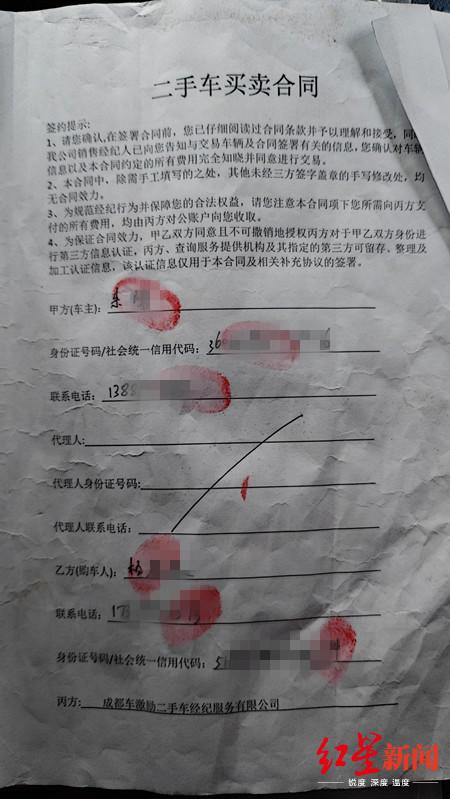 二手车买卖合同
签约提示:
1、请您确认,在签署合同前，您已仔细阅读过合同条款并予以理解和接受，同
我公司销售经纪人已向您告知与交易车辆及合同签署有关的信息,您确认对车辆
信息以及本合同约定的所有费用完全知晓并同意进行交易。
2、本合同中，除需手工填写的之处，其他未经三方签字盖章的手写修改处，均
无合同效力。
3、为规范经纪行为并保障您的合法权益，请您注意本合同项下您所需向丙方支
付的所有费用，均由丙方对公账户向您收取。
4、为保证合同效力，甲乙双方同意且不可撤销地授权丙方对于甲乙双方身份进
行第三方信息认证，丙方、查询服务提供机构及其指定的第三方可留存、整理及
加工认证信息，该认证信息仅用于本合同及相关补充协议的签署。
甲方(车主):
身份证号码/社会统一信用代码: 36
联系电话: 138
代理人:
代理人身份证号码:
代理人联系电话:
乙方(购车人): 杨
联系电话: 1
身份证号码/社会统一信用代码: 5
丙方: 成都车激励二手车经纪服务有限公司
红星新闻
锐度 深度 温度